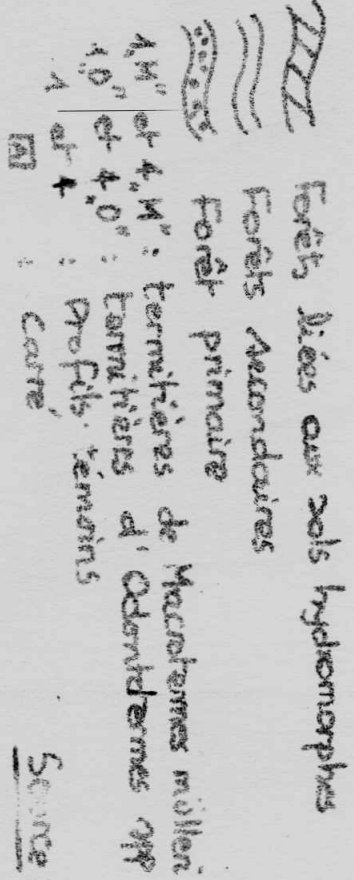 Forêts liées aux sols hydromorphes
Forêts secondaires
Forêt primaire
1"M" et 4"M" : termitières de Macrotermes mülleri
1"O" et 4"O" : termitières d'Odontotermes spp
1 et 4 : Profils témoins
A : carré
Source